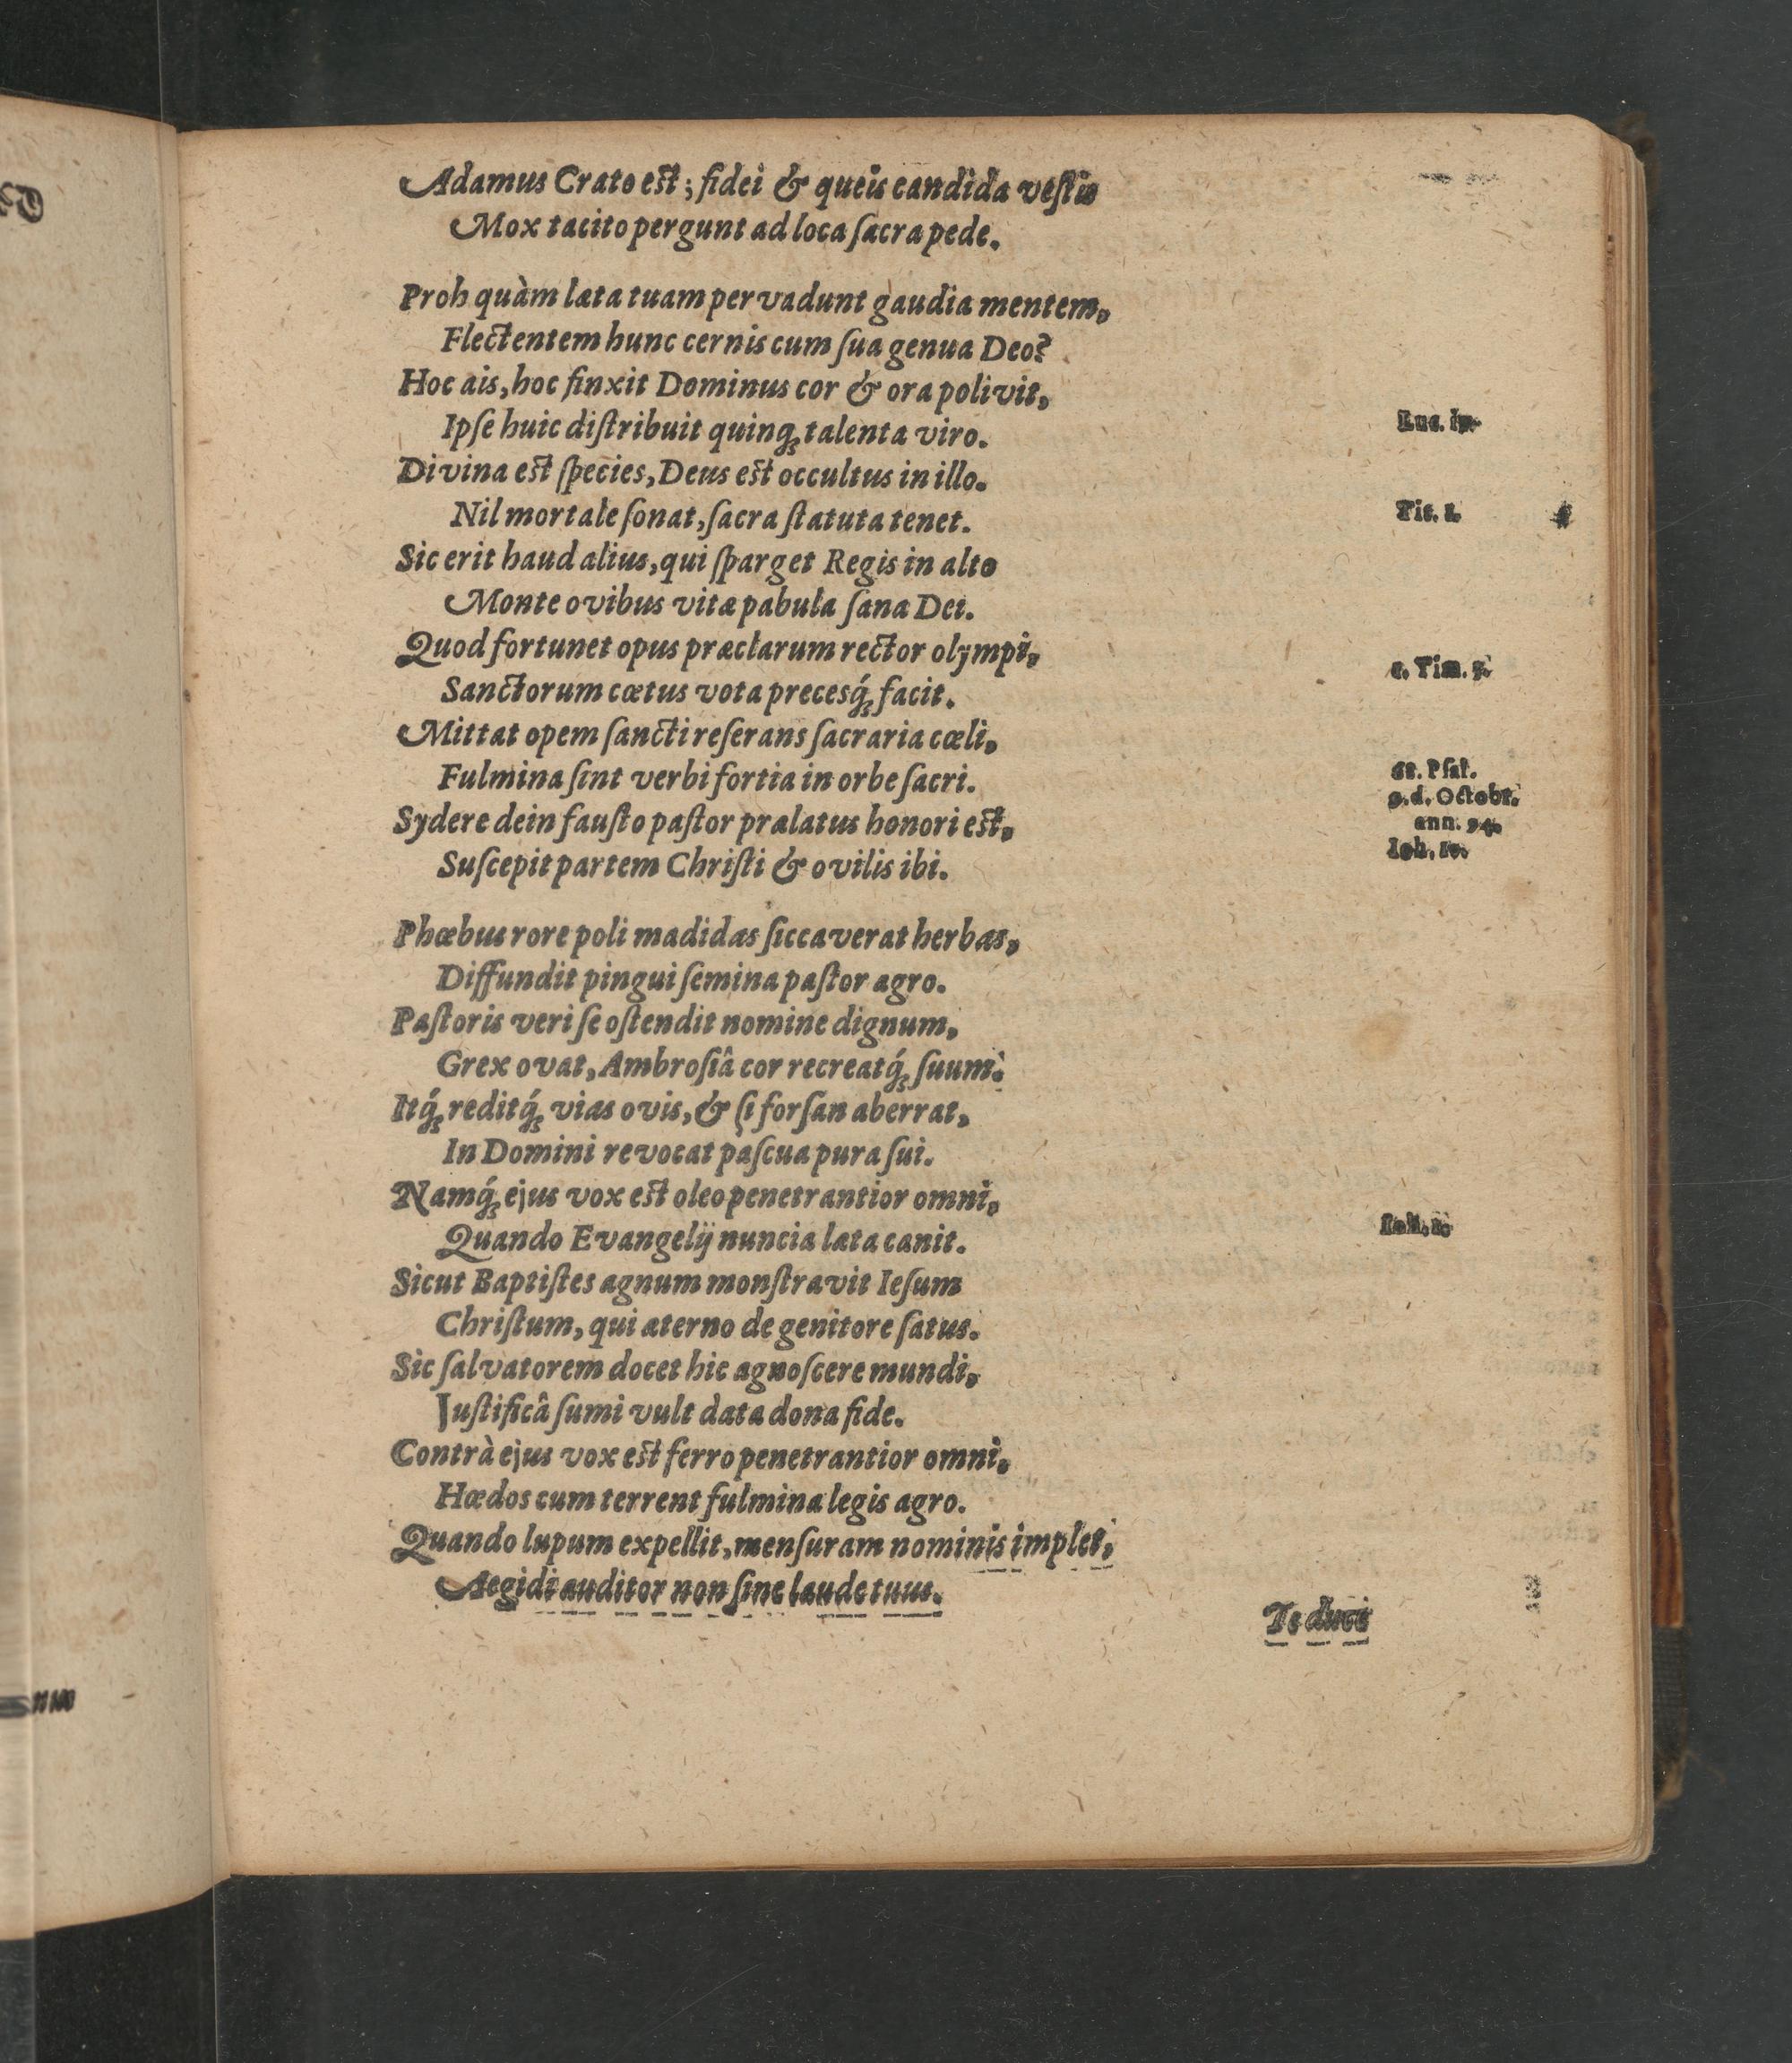 Adamus Crato est; fidei & queis candida vestis
Mox tacito pergunt ad loca sacra pede.
Proh quàm læta tuam pervadunt gaudia mentem,
Flectentem hunc cernis cum sua genua Deo?
Hoc ais, hoc finxit Dominus cor & ora polivit,
Ipse huic distribuit quinq; talenta viro.
Luc. 19.
Divina est species, Deus est occultus in illo.
Nil mortale sonat, sacra statuta tenet.
Tit. 1.
Sic erit haud alius, qui sparget Regis in alto
Monte ovibus vitæ pabula sana Dei.
Quod fortunet opus præclarum rector olympi,
Sanctorum cœtus vota precesq́; facit.
Tim.
Mittat opem sancti reserans sacraria cœli,
Fulmina sint verbi fortia in orbe sacri.
Psal.
Sydere dein fausto pastor prælatus honori est,
d. Octobr.
ann. 94.
Suscepit partem Christi & ovilis ibi.
Ioh. 10.
Phœbus rore poli madidas siccaverat herbas,
Diffundit pingui semina pastor agro.
Pastoris veri se ostendit nomine dignum,
Grex ovat, Ambrosiâ cor recreatq́; suum.
Itq́; reditq́; vias ovis, & si forsan aberrat,
In Domini revocat pascua pura sui.
Namq́; ejus vox est oleo penetrantior omni,
Quando Evangelij nuncia læta canit.
Sicut Baptistes agnum monstravit Iesum
Christum, qui æterno de genitore satus.
Sic salvatorem docet hic agnoscere mundi,
Justificâ sumi vult data dona fide.
Contrà ejus vox est ferro penetrantior omni,
Hœdos cum terrent fulmina legis agro.
Quando lupum expellit, mensuram nominis implet,
Aegidi auditor non sine laude tuus.
Te duce